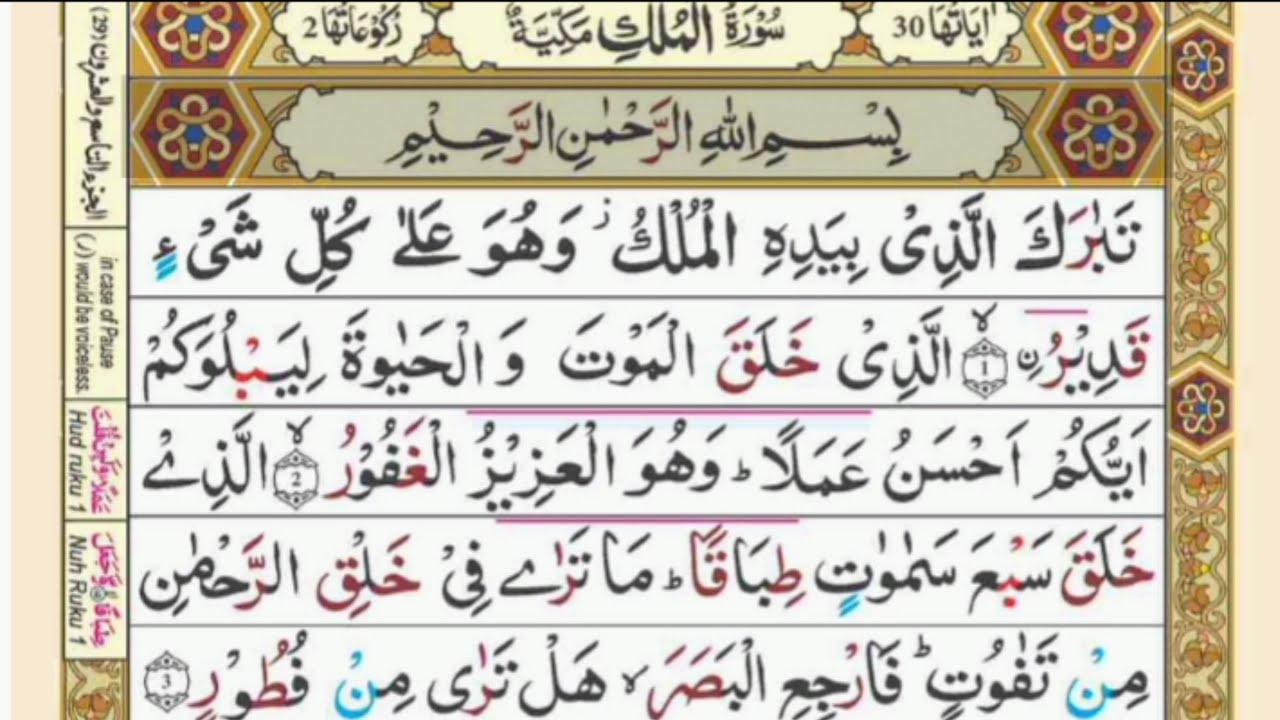 اٰيَاتُهَا 30
سُوْرَةُ الْمُلْكِ مَكِّيَّةٌ
رُكُوْعَاتُهَا 2
بِسْمِ اللّٰهِ الرَّحْمٰنِ الرَّحِيْمِ
تَبٰرَكَ الَّذِىْ بِيَدِهِ الْمُلْكُ ز وَهُوَ عَلٰى كُلِّ شَىْءٍ
قَدِيْرُ نِ ۙ 1 الَّذِىْ خَلَقَ الْمَوْتَ وَ الْحَيٰوةَ لِيَبْلُوَكُمْ
اَيُّكُمْ اَحْسَنُ عَمَلًا ؕ وَهُوَ الْعَزِيْزُ الْغَفُوْرُ ۙ 2 الَّذِىْ
خَلَقَ سَبْعَ سَمٰوٰتٍ طِبَاقًا ؕ مَا تَرٰى فِىْ خَلْقِ الرَّحْمٰنِ
مِنْ تَفٰوُتٍ ؕ فَارْجِعِ الْبَصَرَ ۙ هَلْ تَرٰى مِنْ فُطُوْرٍ 3
الجزء التاسع والعشرون (29)
in case of Pause
(ر) would be voiceless.
Hud ruku 1
Nuh Ruku 1